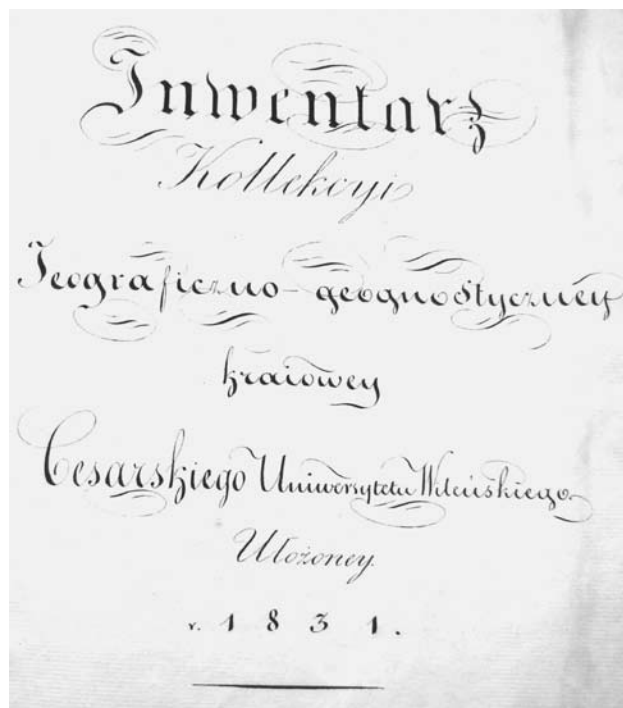 Inwentarz
Kollekcyi
Jeograficzno-geognostyczney
kraiowey
Cesarskiego Uniwersytetu Wileńskiego
Ułożoney.
r. 1831.